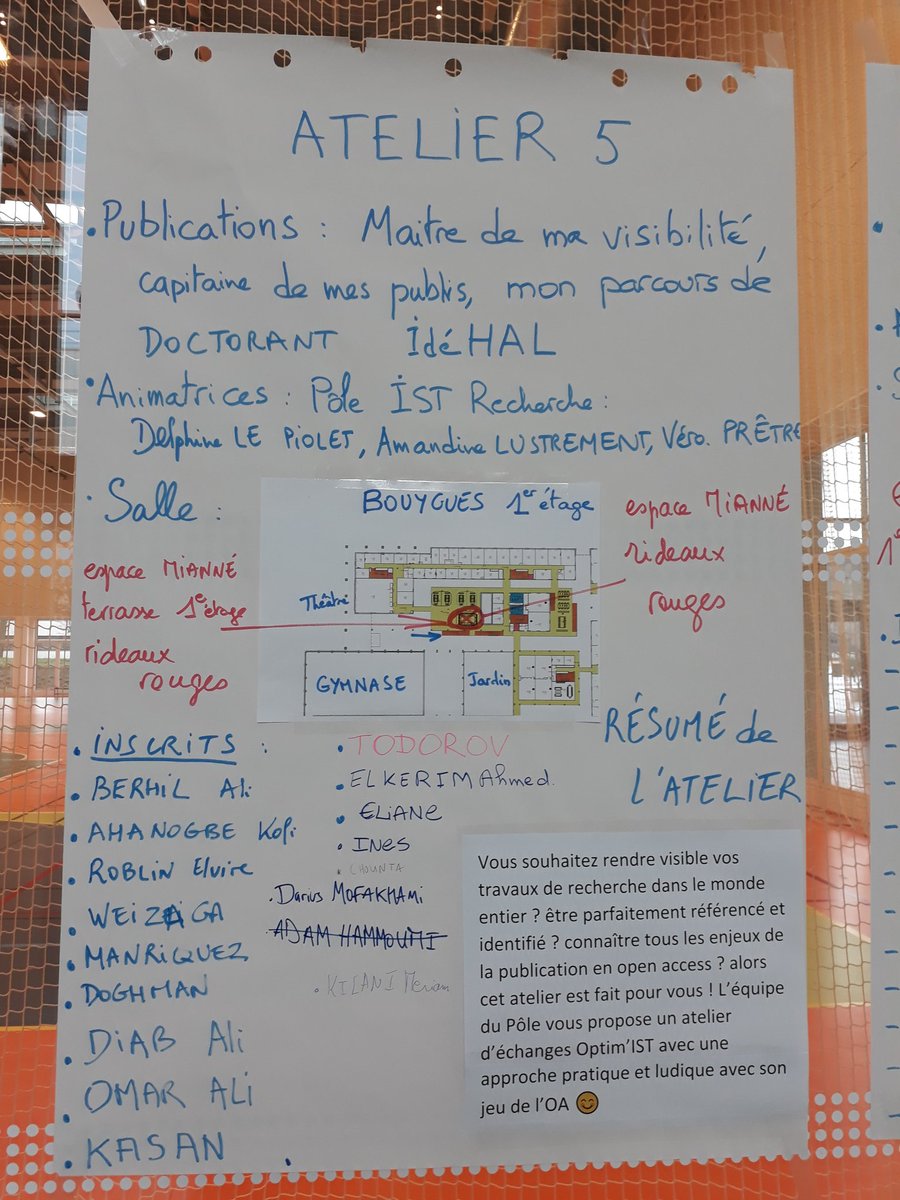 ATELIER 5
• Publications : Maitre de ma visibilité,
capitaine de mes publis, mon parcours de
DOCTORANT IdéHAL
• Animatrices : Pôle IST Recherche :
Delphine LE PIOLET, Amandine LUSTREMENT, Véro. PRÊTRE
• Salle :
espace MIANNÉ
terrasse 1er étage
rideaux
rouges
BOUYGUES 1er étage
Théâtre
GYMNASE
Jardin
espace MIANNÉ
rideaux
rouges
• INSCRITS :
• BERHIL Ali
• AHANOGBE Kofi
• ROBLIN Elvire
• WEIZAGA
• MANRIQUEZ
• DOGHMAN
• DIAB Ali
• OMAR ALI
• KASAN
•
• TODOROV
• ELKERIM Ahmed.
• ELIANE
• INES
• CHOUNTA
• Darius MOFAKHAMI
ADAM HAMMOUMI
• KILANI Meriam
RÉSUMÉ de
L'ATELIER
Vous souhaitez rendre visible vos
travaux de recherche dans le monde
entier ? être parfaitement référencé et
identifié ? connaître tous les enjeux de
la publication en open access ? alors
cet atelier est fait pour vous ! L'équipe
du Pôle vous propose un atelier
d'échanges Optim'IST avec une
approche pratique et ludique avec son
jeu de l'OA 😊